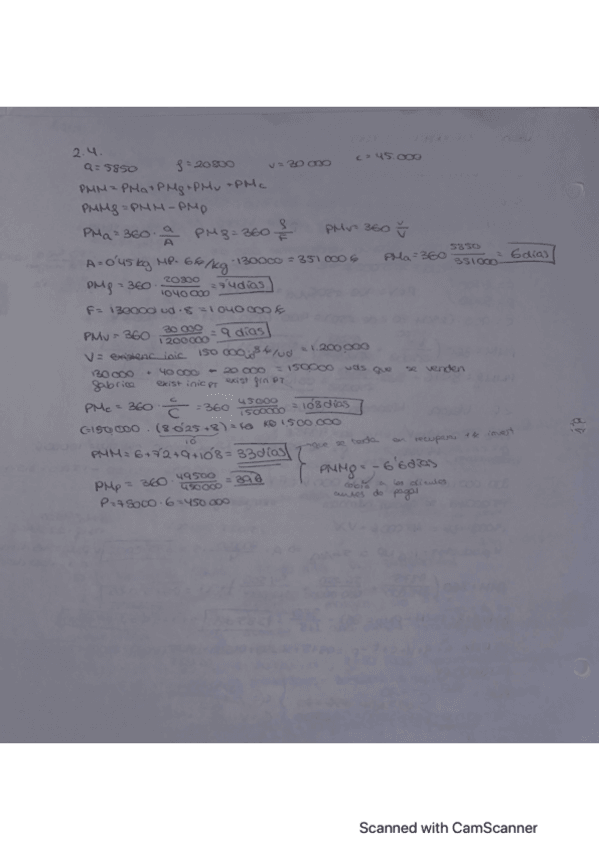 2.4.
a = 5850 f = 20800 v = 30 000 c = 45.000
PMM = PMa + PMf + PMv + PMc
PMMf = PMM - PMp
PMa = 360 · a/A PMf = 360 f/F PMv = 360 v/V
A = 0'45 kg MP · 6 €/kg · 130000 = 351 000 € PMa = 360 5850/351000 = 6 días
PMf = 360 · 20800/1040000 = 7'4 días
F = 130000 ud · 8 = 1 040 000 €
PMv = 360 · 30 000/1200000 = 9 días
V = existenc inic 150 000 · 8 €/ud = 1.200 000
130 000 + 40 000 - 20 000 = 150000 uds que se venden
fabrica exist inic PT exist fin PT
PMc = 360 · c/C = 360 45000/1500000 = 10'8 días
C = 150.000 · (8·0'25 + 8) = 1500 000
10
PMM = 6 + 7'2 + 9 + 10'8 = 33 días que se tarda en recuperar invest
PMMf = -6'6 días
PMp = 360 · 49500/450 000 =
antes de pagar
P = 75000 · 6 = 450 000
Scanned with CamScanner